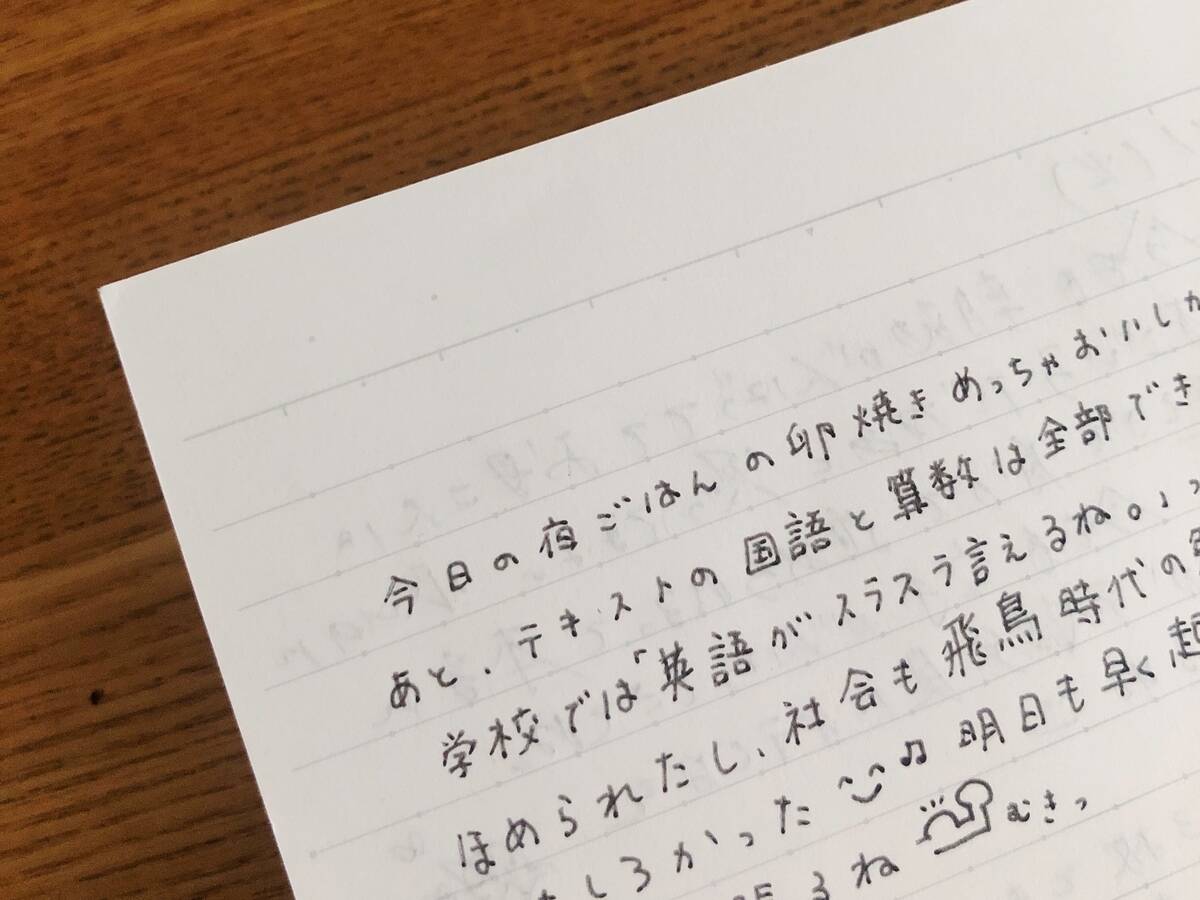 今日の夜ごはんの卵焼きめっちゃおいしか
あと、テキストの国語と算数は全部でき
学校では「英語がスラスラ言えるね。」っ
ほめられたし、社会も飛鳥時代の
しろかった♪明日も早く起
るね むきっ